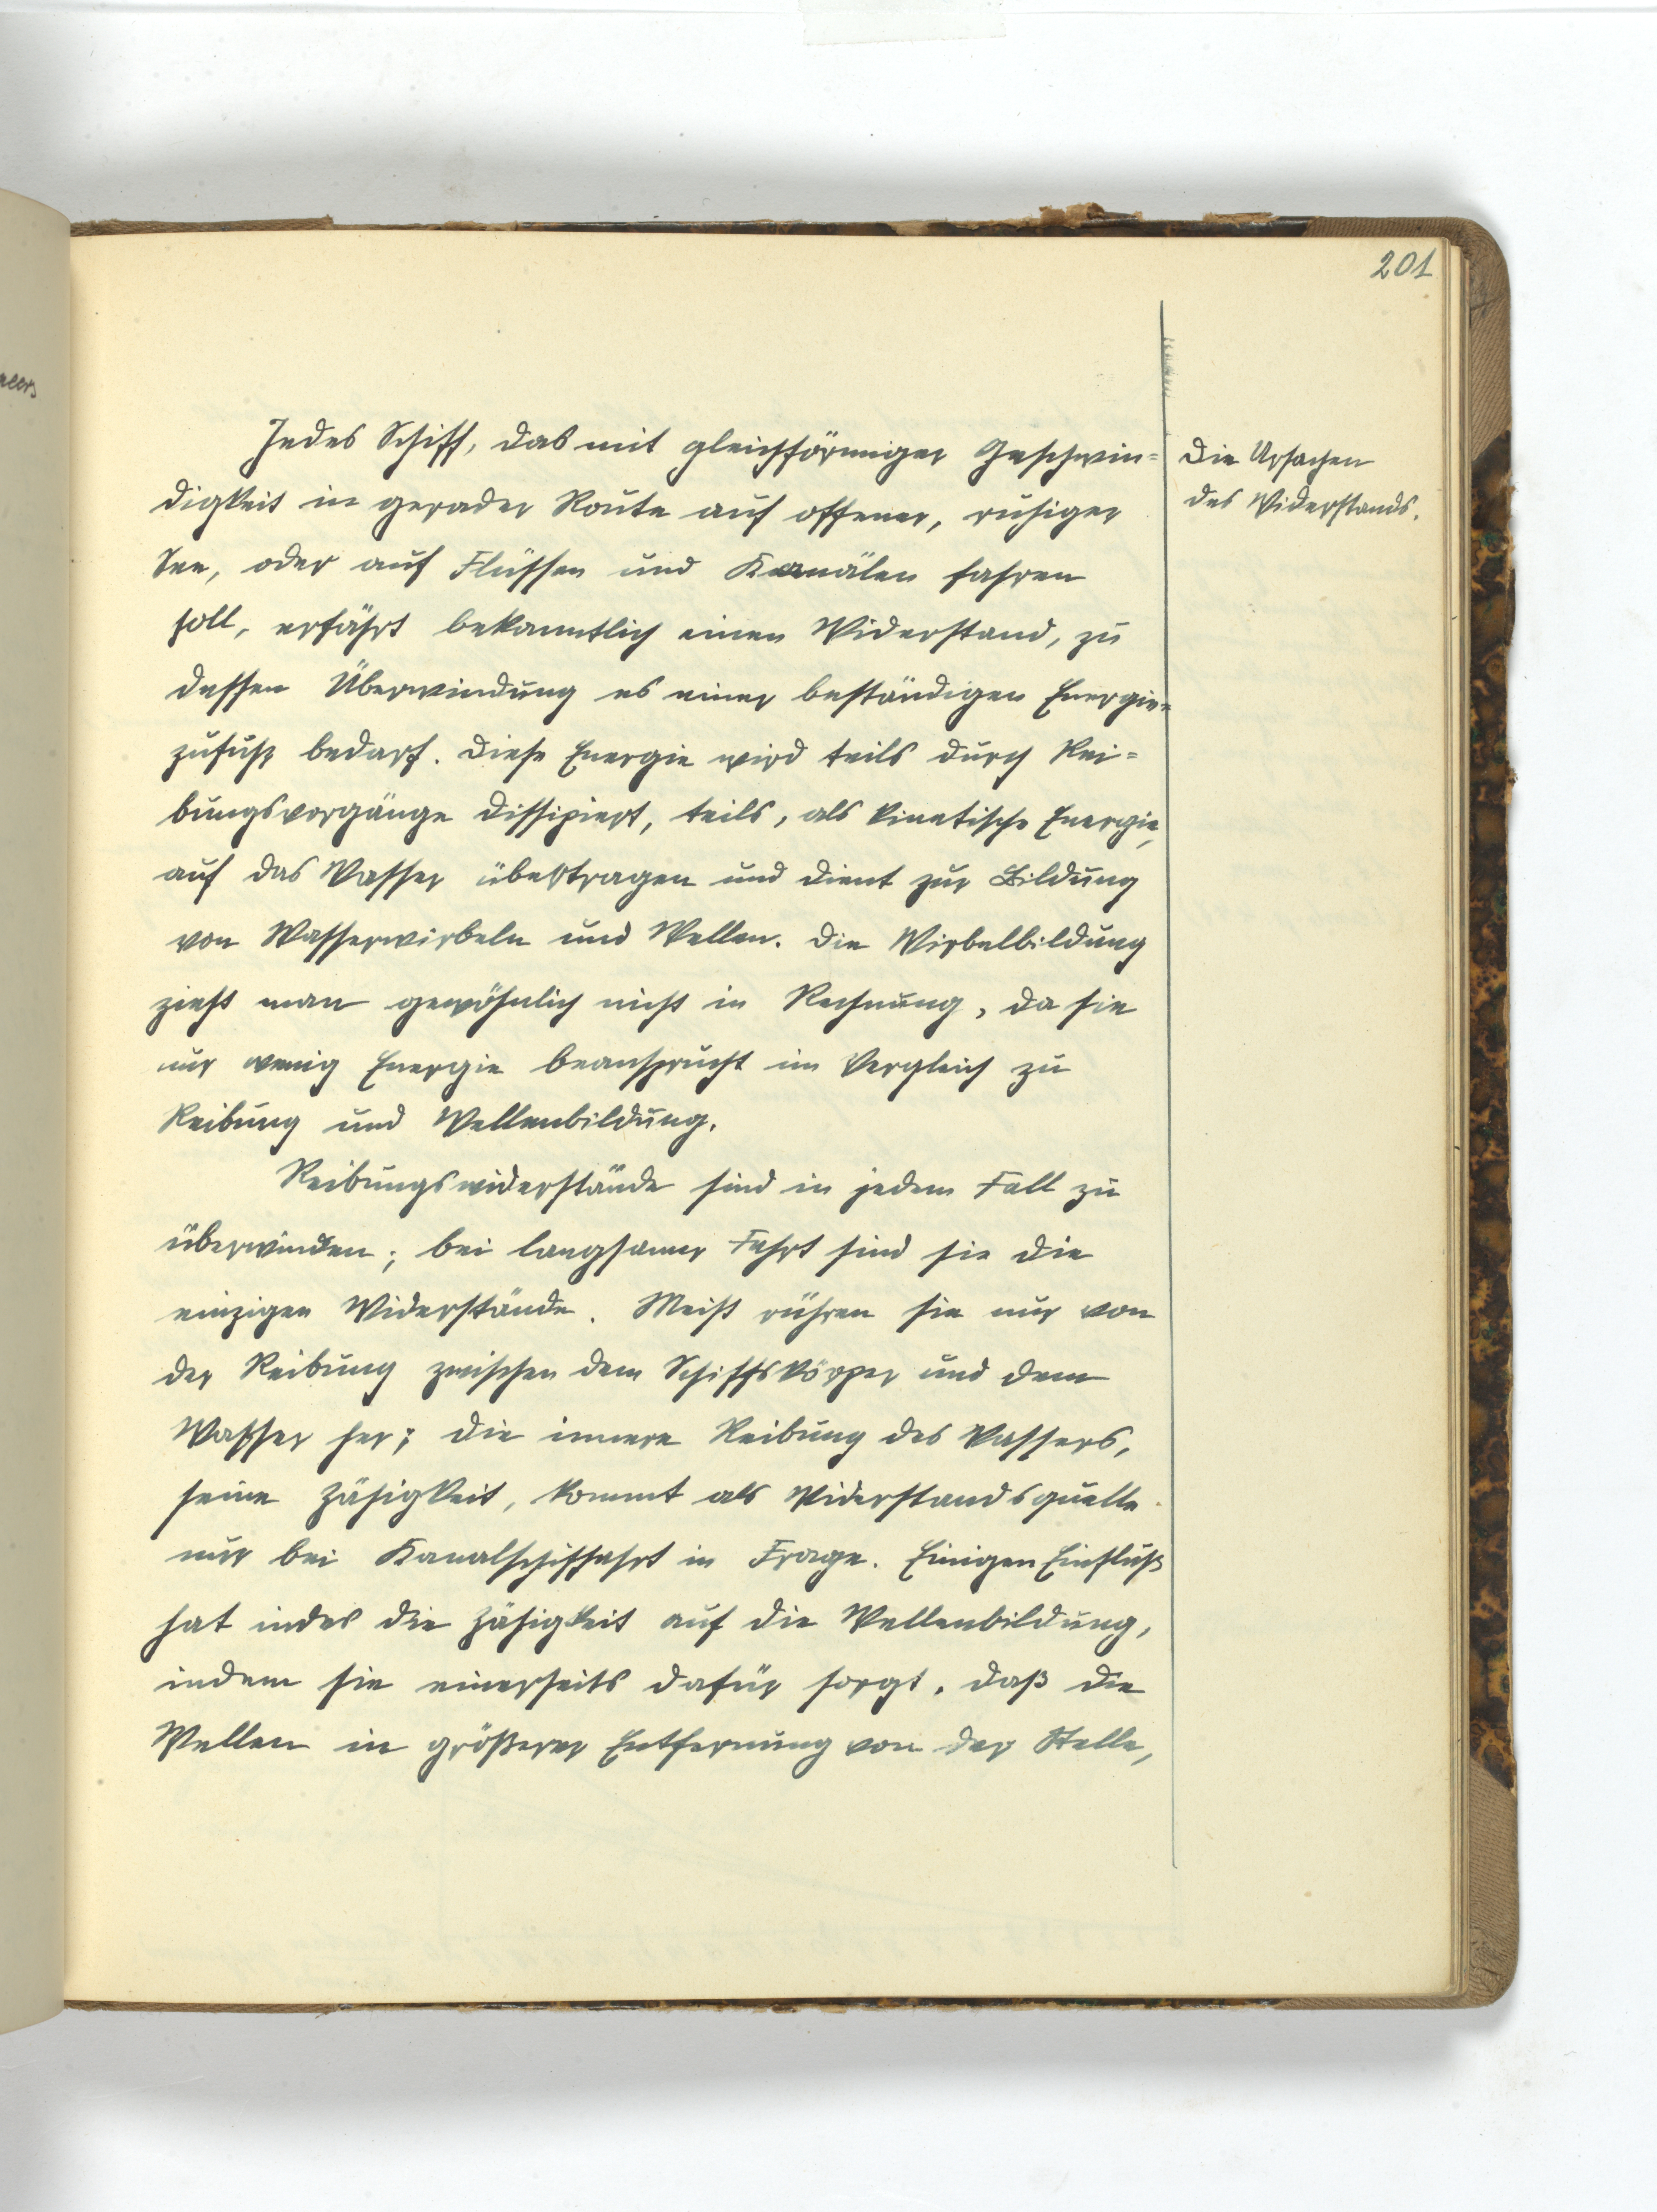 201
Jedes Schiff, das mit gleichförmiger Geschwin-
digkeit in gerader Route auf offener, ruhiger
See, oder auf Flüssen und Kanälen fahren
soll, erfährt bekanntlich einen Widerstand, zu
dessen Überwindung es einer beständigen Energie-
zufuhr bedarf. Diese Energie wird teils durch Rei-
bungsvorgänge dissipiert, teils, als kinetische Energie,
auf das Wasser übertragen und dient zur Bildung
von Wasserwirbeln und Wellen. Die Wirbelbildung
zieht man gewöhnlich nicht in Rechnung, da sie
nur wenig Energie beansprucht im Vergleich zu
Reibung und Wellenbildung.
Reibungswiderstände sind in jedem Fall zu
überwinden; bei langsamer Fahrt sind sie die
einzigen Widerstände. Meist rühren sie nur von
der Reibung zwischen dem Schiffskörper und dem
Wasser her; die innere Reibung des Wassers,
seine Zähigkeit, kommt als Widerstandsquelle
nur bei Kanalschiffahrt in Frage. Einigen Einfluß
hat indes die Zähigkeit auf die Wellenbildung,
indem sie einerseits dafür sorgt, daß die
Wellen in größerer Entfernung von der Stelle,
Die Ursachen
des Widerstands.